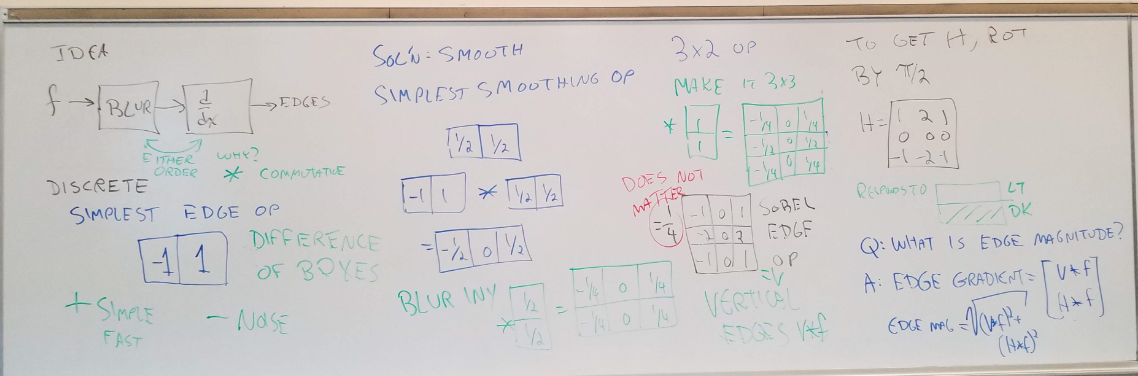 IDEA
f → BLUR → d/dx → EDGES
EITHER ORDER
WHY?
* COMMUTATIVE
DISCRETE
SIMPLEST EDGE OP
-1 1
DIFFERENCE
OF BOXES
+ SIMPLE
FAST
- NOISE
SOL'N: SMOOTH
SIMPLEST SMOOTHING OP
1/2 1/2
-1 1 * 1/2 1/2
= -1/2 0 1/2
BLUR IN Y
* 1/2
1/2
= -1/4 0 1/4
-1/4 0 1/4
3x2 OP
MAKE IT 3x3
* 1
1
= -1/4 0 1/4
-1/2 0 1/2
-1/4 0 1/4
DOES NOT
MATTER
= 1/4
-1 0 1
-2 0 2
-1 0 1
SOBEL
EDGE
OP
= V
VERTICAL
EDGES V*f
TO GET H, ROT
BY π/2
H =
1 2 1
0 0 0
-1 -2 -1
LT
DK
Q: WHAT IS EDGE MAGNITUDE?
A: EDGE GRADIENT = [V*f
H*f]
EDGE MAG = √(V*f)² +
(H*f)²